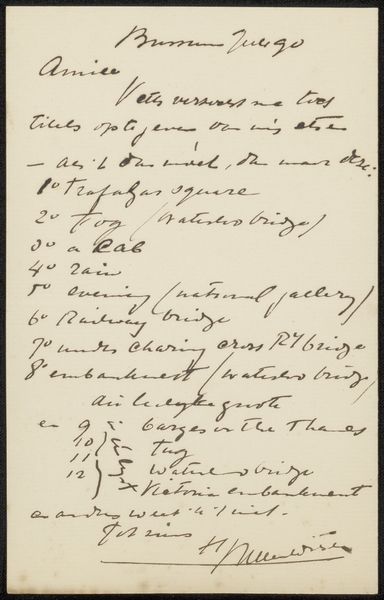 Bussum
Amice
Veth me toch
titels op te geven van mijn etsen
— als 't dan moet, dan maar deze:
1° Trafalgar square
2° Fog (Waterloo bridge)
3° a Cab
4° rain
5° evening (national gallery)
6° Railway bridge
7° under charing cross RY bridge
8° embankment (waterloo bridge)
en 9 barges on the Thames
10 tug
11 waterloo bridge
12 Victoria embankment
en anders weet ik 't niet.